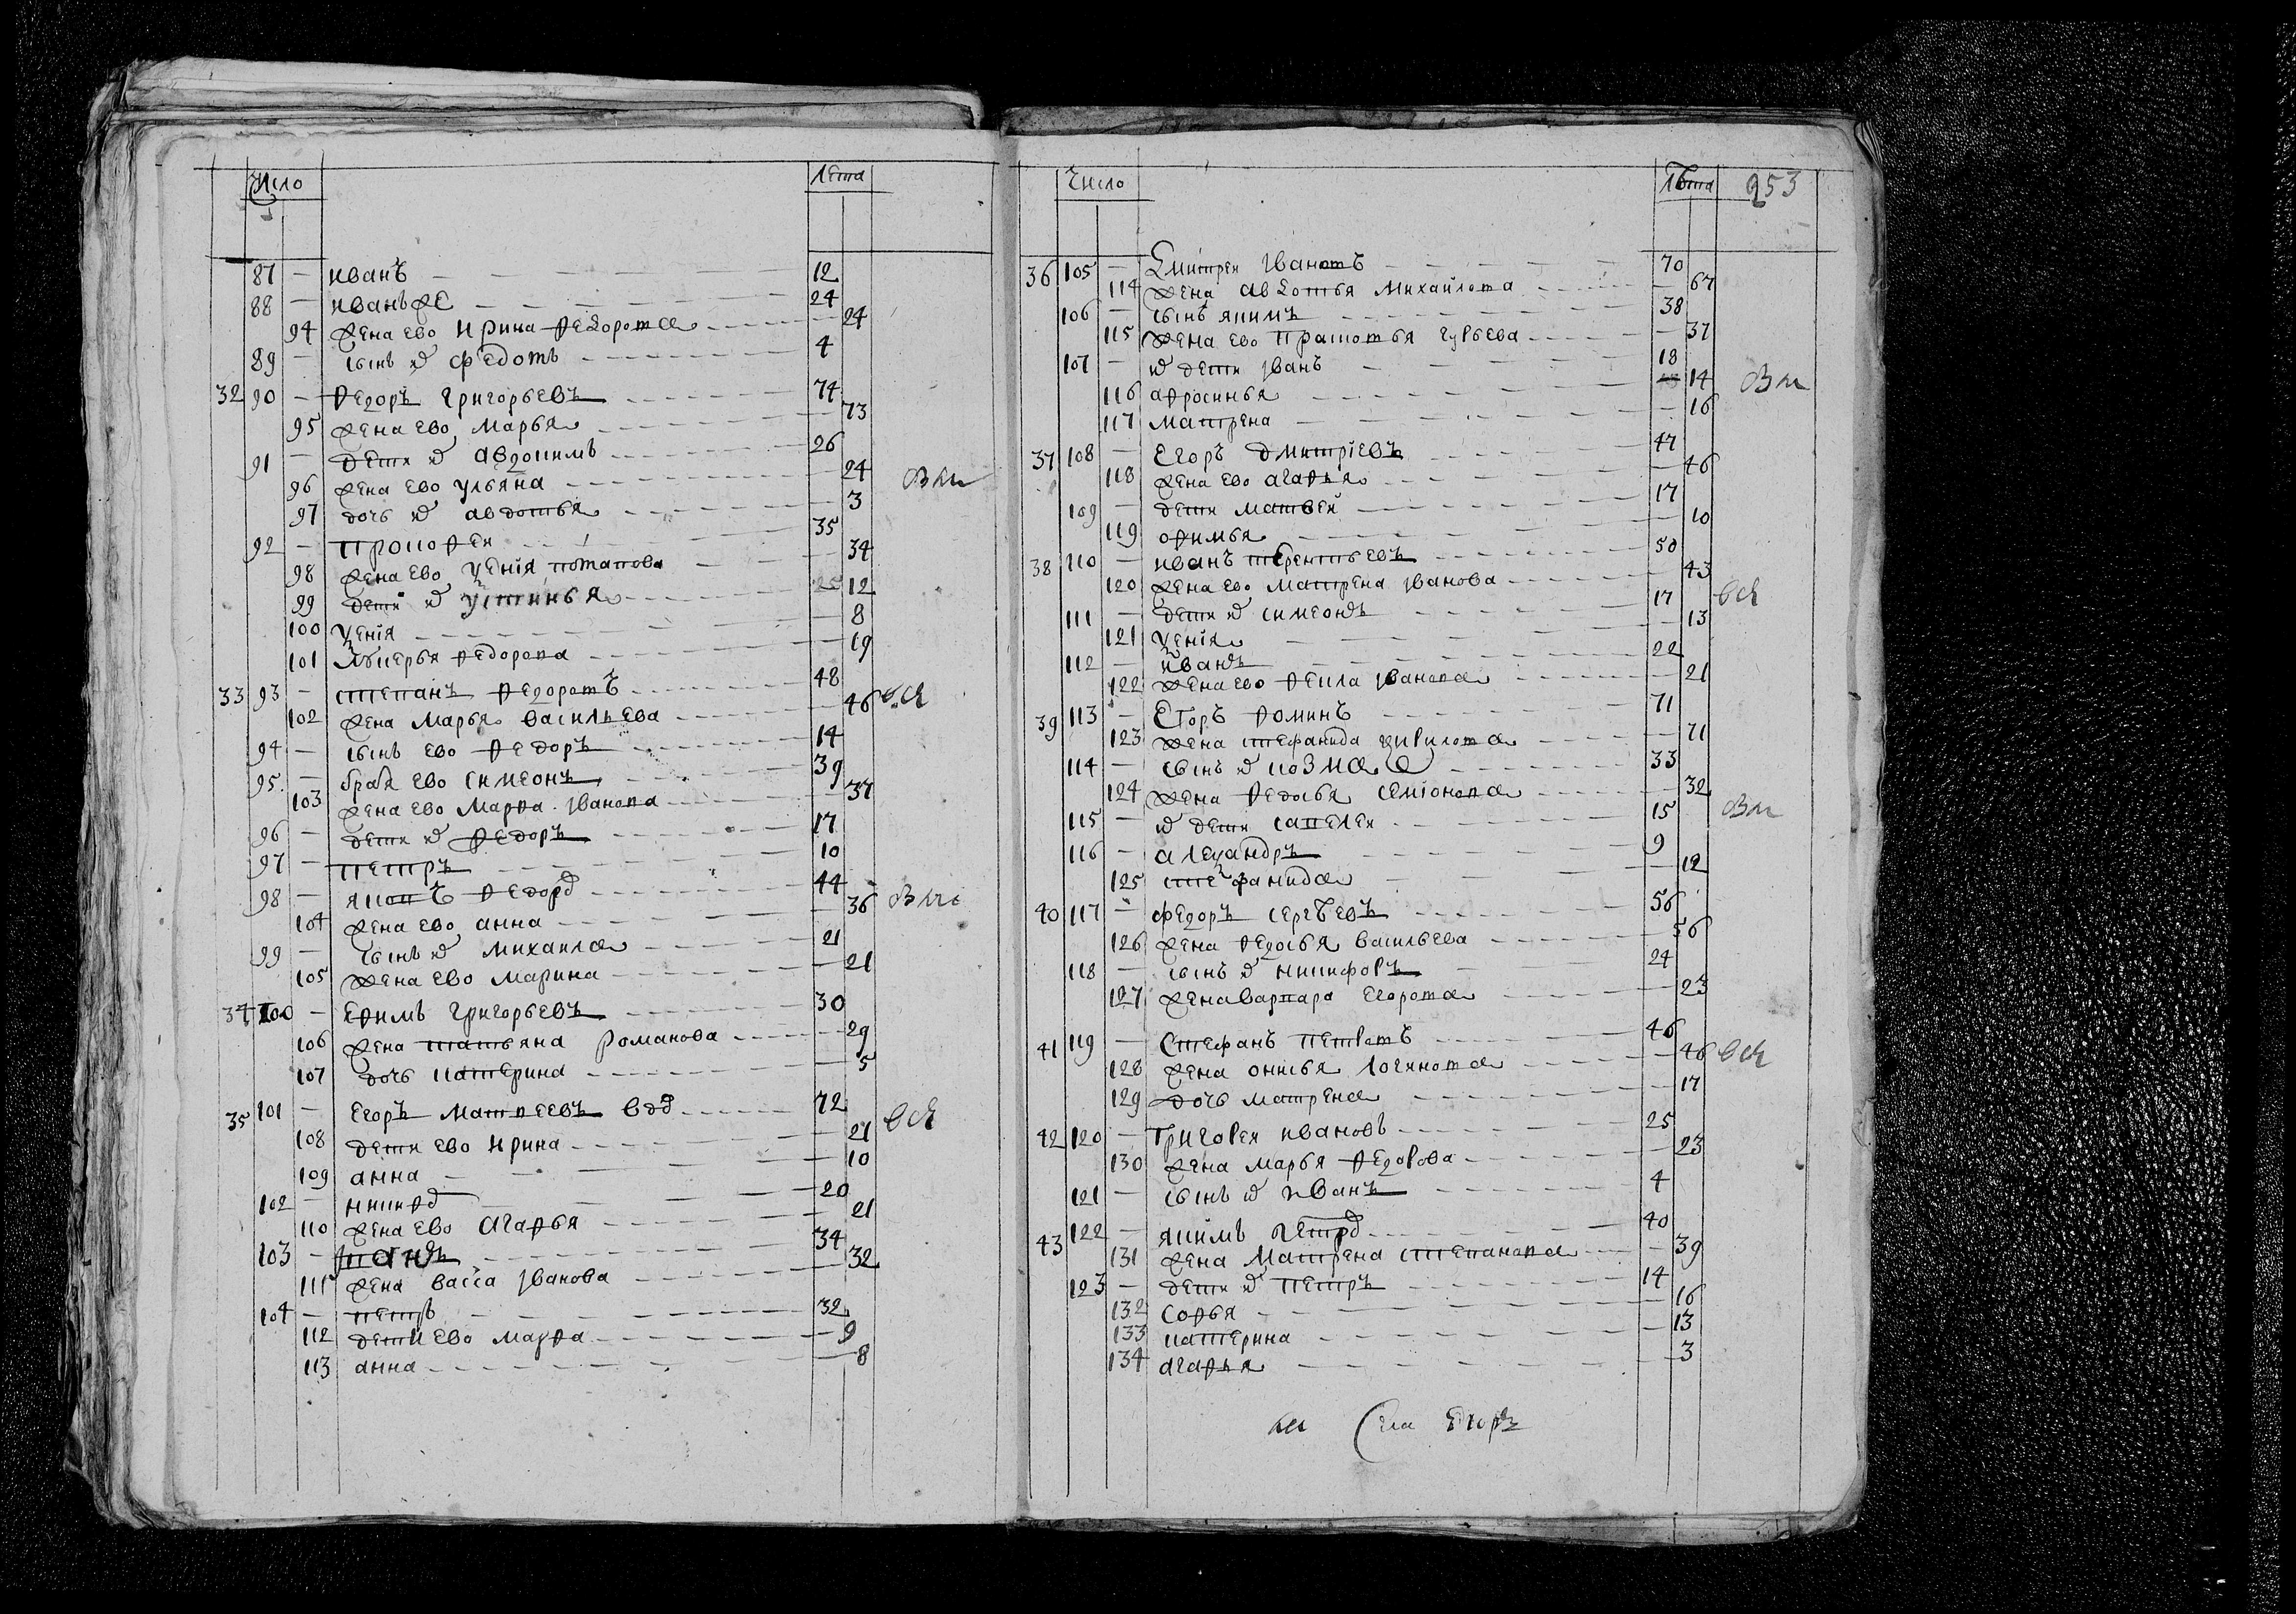 Число Лета
87 — иванъ — 12
88 — иванъ же — 24
94 жена ево Ирина федорова — 24
89 — сынъ их федотъ — 4
32 90 — федоръ григорьевъ — 74
95 жена ево Марья — 73
91 — дети их Авдокимъ — 26
96 жена ево ульяна — 24
97 дочь их авдотья — 3
92 — прокофеи — 35
98 жена ево ѯения потапова — 34
99 дети их устинья — 12
100 ѯенія — 8
101 федорова — 19
33 93 — степанъ федоровъ — 48
102 жена Марья васильева — 46
94 — сынъ ево федоръ — 14
95 — братъ ево симеонъ — 39
103 жена ево Марфа иванова — 37
96 — дети их федоръ — 17
97 — петръ — 10
98 — яковъ федоров — 44
104 жена ево анна — 36
99 — сынъ их михаила — 21
105 жена ево Марина — 21
34 100 — Ефимъ григорьевъ — 30
106 жена татьяна романова — 29
107 дочь катерина — 5
35 101 — Егоръ Матвеевъ вдов — 72
108 дети ево Ирина — 21
109 анна — 10
102 — никифор — 20
110 жена ево Агафья — 21
103 — иванъ — 34
111 жена васса иванова — 32
104 — петръ — 32
112 дети ево мавра — 9
113 анна — 8
Число Лѣта 253
36 105 — Дмитреи ивановъ — 70
114 жена авдотья Михаилова — 67
106 — сынъ якимъ — 38
115 жена ево прасковья гурьева — 37
107 — их дети иванъ — 18
116 афросинья — 14
117 Матрена — 16
37 108 — Егоръ дмитріевъ — 47
118 жена ево агафья — 46
109 — дети матвеи — 17
119 офимья — 10
38 110 — иванъ терентьевъ — 50
120 жена ево Матрена иванова — 43
111 — дети их симеонъ — 17
121 ѯенія — 13
112 — иванъ — 22
122 жена ево фекла иванова — 21
39 113 — Егоръ фоминъ — 71
123 жена стефанида кирилова — 71
114 — сынъ их козма — 33
124 жена федосья семіонова — 32
115 — их дети савелеи — 15
116 — алеѯандръ — 9
125 стефанида — 12
40 117 — федоръ сергѣевъ — 56
126 жена федосья васильева — 56
118 — сынъ их никифоръ — 24
127 жена варвара Егорова — 23
41 119 — Стефанъ петровъ — 46
128 жена онисья логинова — 46
129 дочь матрена — 17
42 120 — Григореи ивановъ — 25
130 жена марья федорова — 23
121 — сынъ их иванъ — 4
43 122 — якимъ петров — 40
131 жена Матрена степанова — 39
123 — дети их петръ — 14
132 Софья — 16
133 катерина — 13
134 агафья — 3